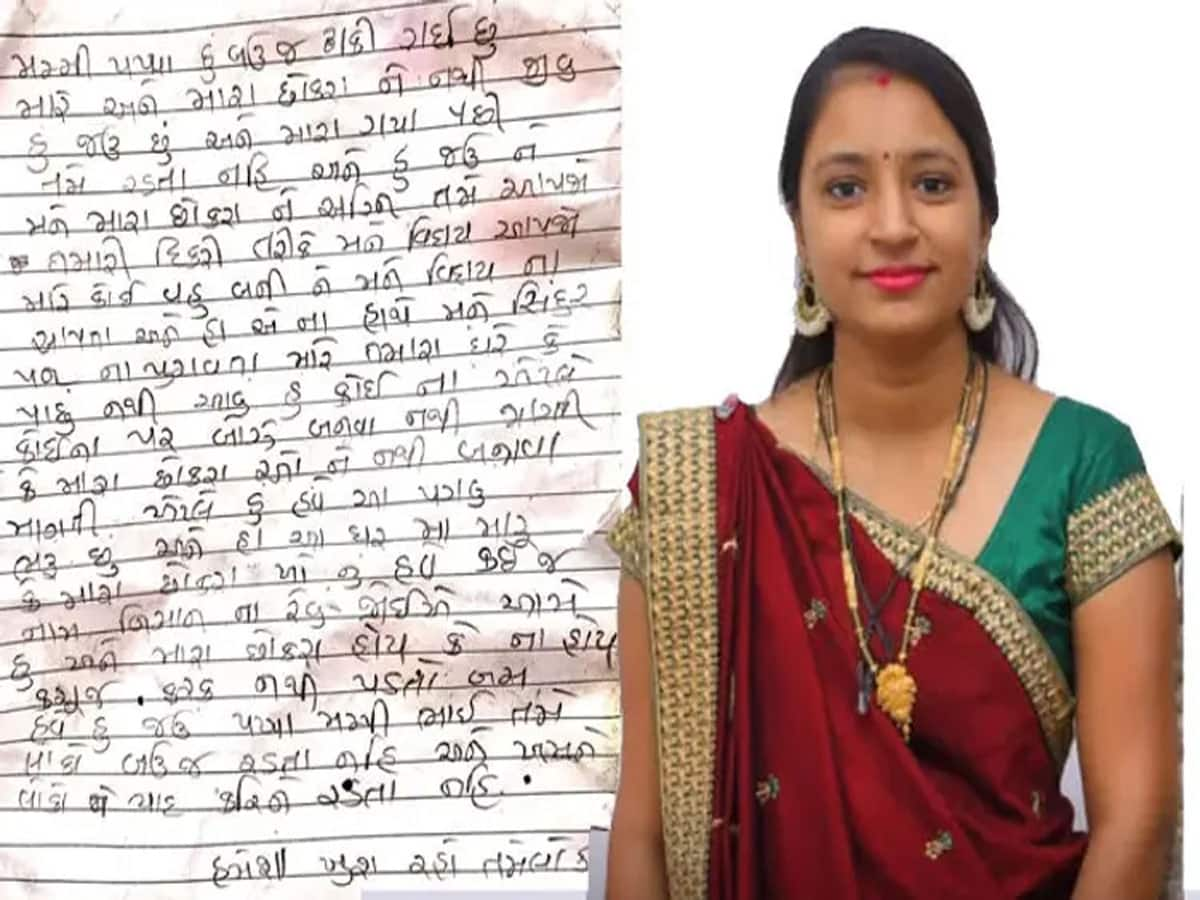 મમ્મી પપ્પા હું બઉજ થાકી ગઈ છું
મારે અને મારા છોકરા ને નથી જીવુ
હું જઉ છું અને મારા ગયા પછી
તમે રડતા નહિ અને હું જઉ ને
મને મારા છોકરા ને અગ્નિ તમે આપજો
તમારી દિકરી તરીકે મને વિદાય આપજો
મારે કોઈ વહુ બની ને મને વિદાય ના
આપતા અને હા એ ના હાથે મને સિંદુર
પણ ના પુરાવતા મારે તમારા ઘરે કે
પાછુ નથી આવુ હું કોઈ ના
કોઈના પર બોજ બનવા નથી માગતી
કે મારા છોકરા ને નથી બનાવા
માગતી એટલે હું હવે આ પગલુ
ભરુ છું અને હા આ ઘર મા મારુ
કે મારા છોકરા નું હવે કઈ જ
નામ નિશાન ના રેવુ જોઈએ આમે
હું અને મારા છોકરા હોય કે ના હોય
કશુજ ફરક નથી પડતો બસ
હવે હું જઉ પપ્પા મમ્મી ભાઈ તમે
લોકો બઉજ રડતા નહિ અને અમને
લોકો ને યાદ કરિને રડતા નહિ.
હંમેશા ખુશ રહો તમેલોકો